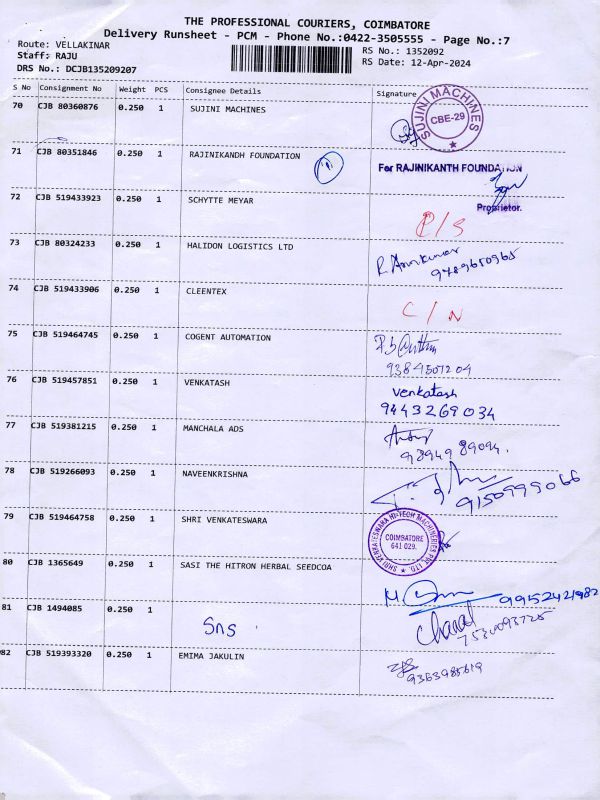 THE PROFESSIONAL COURIERS, COIMBATORE
Delivery Runsheet - PCM - Phone No.:0422-3505555 - Page No.:7
Route: VELLAKINAR RS No.: 1352092
Staff: RAJU RS Date: 12-Apr-2024
DRS No.: DCJB135209207
S No Consignment No Weight PCS Consignee Details Signature
70 CJB 80360876 0.250 1 SUJINI MACHINES
SUJINI MACHINES CBE-29
71 CJB 80351846 0.250 1 RAJINIKANDH FOUNDATION
For RAJINIKANTH FOUNDATION
Proprietor.
72 CJB 519433923 0.250 1 SCHYTTE MEYAR
P/S
73 CJB 80324233 0.250 1 HALIDON LOGISTICS LTD
9789650965
74 CJB 519433906 0.250 1 CLEENTEX
C/N
75 CJB 519464745 0.250 1 COGENT AUTOMATION
9384507204
76 CJB 519457851 0.250 1 VENKATASH venkatash
9443269034
77 CJB 519381215 0.250 1 MANCHALA ADS
9894989094.
78 CJB 519266093 0.250 1 NAVEENKRISHNA
9150999066
79 CJB 519464758 0.250 1 SHRI VENKATESWARA
SHRI VENKATESWARA HI-TECH MACHINERIES PVT. LTD.
COIMBATORE
641 029.
80 CJB 1365649 0.250 1 SASI THE HITRON HERBAL SEEDCOA
9952421982
81 CJB 1494085 0.250 1
SNS
82 CJB 519393320 0.250 1 EMIMA JAKULIN
9363985619